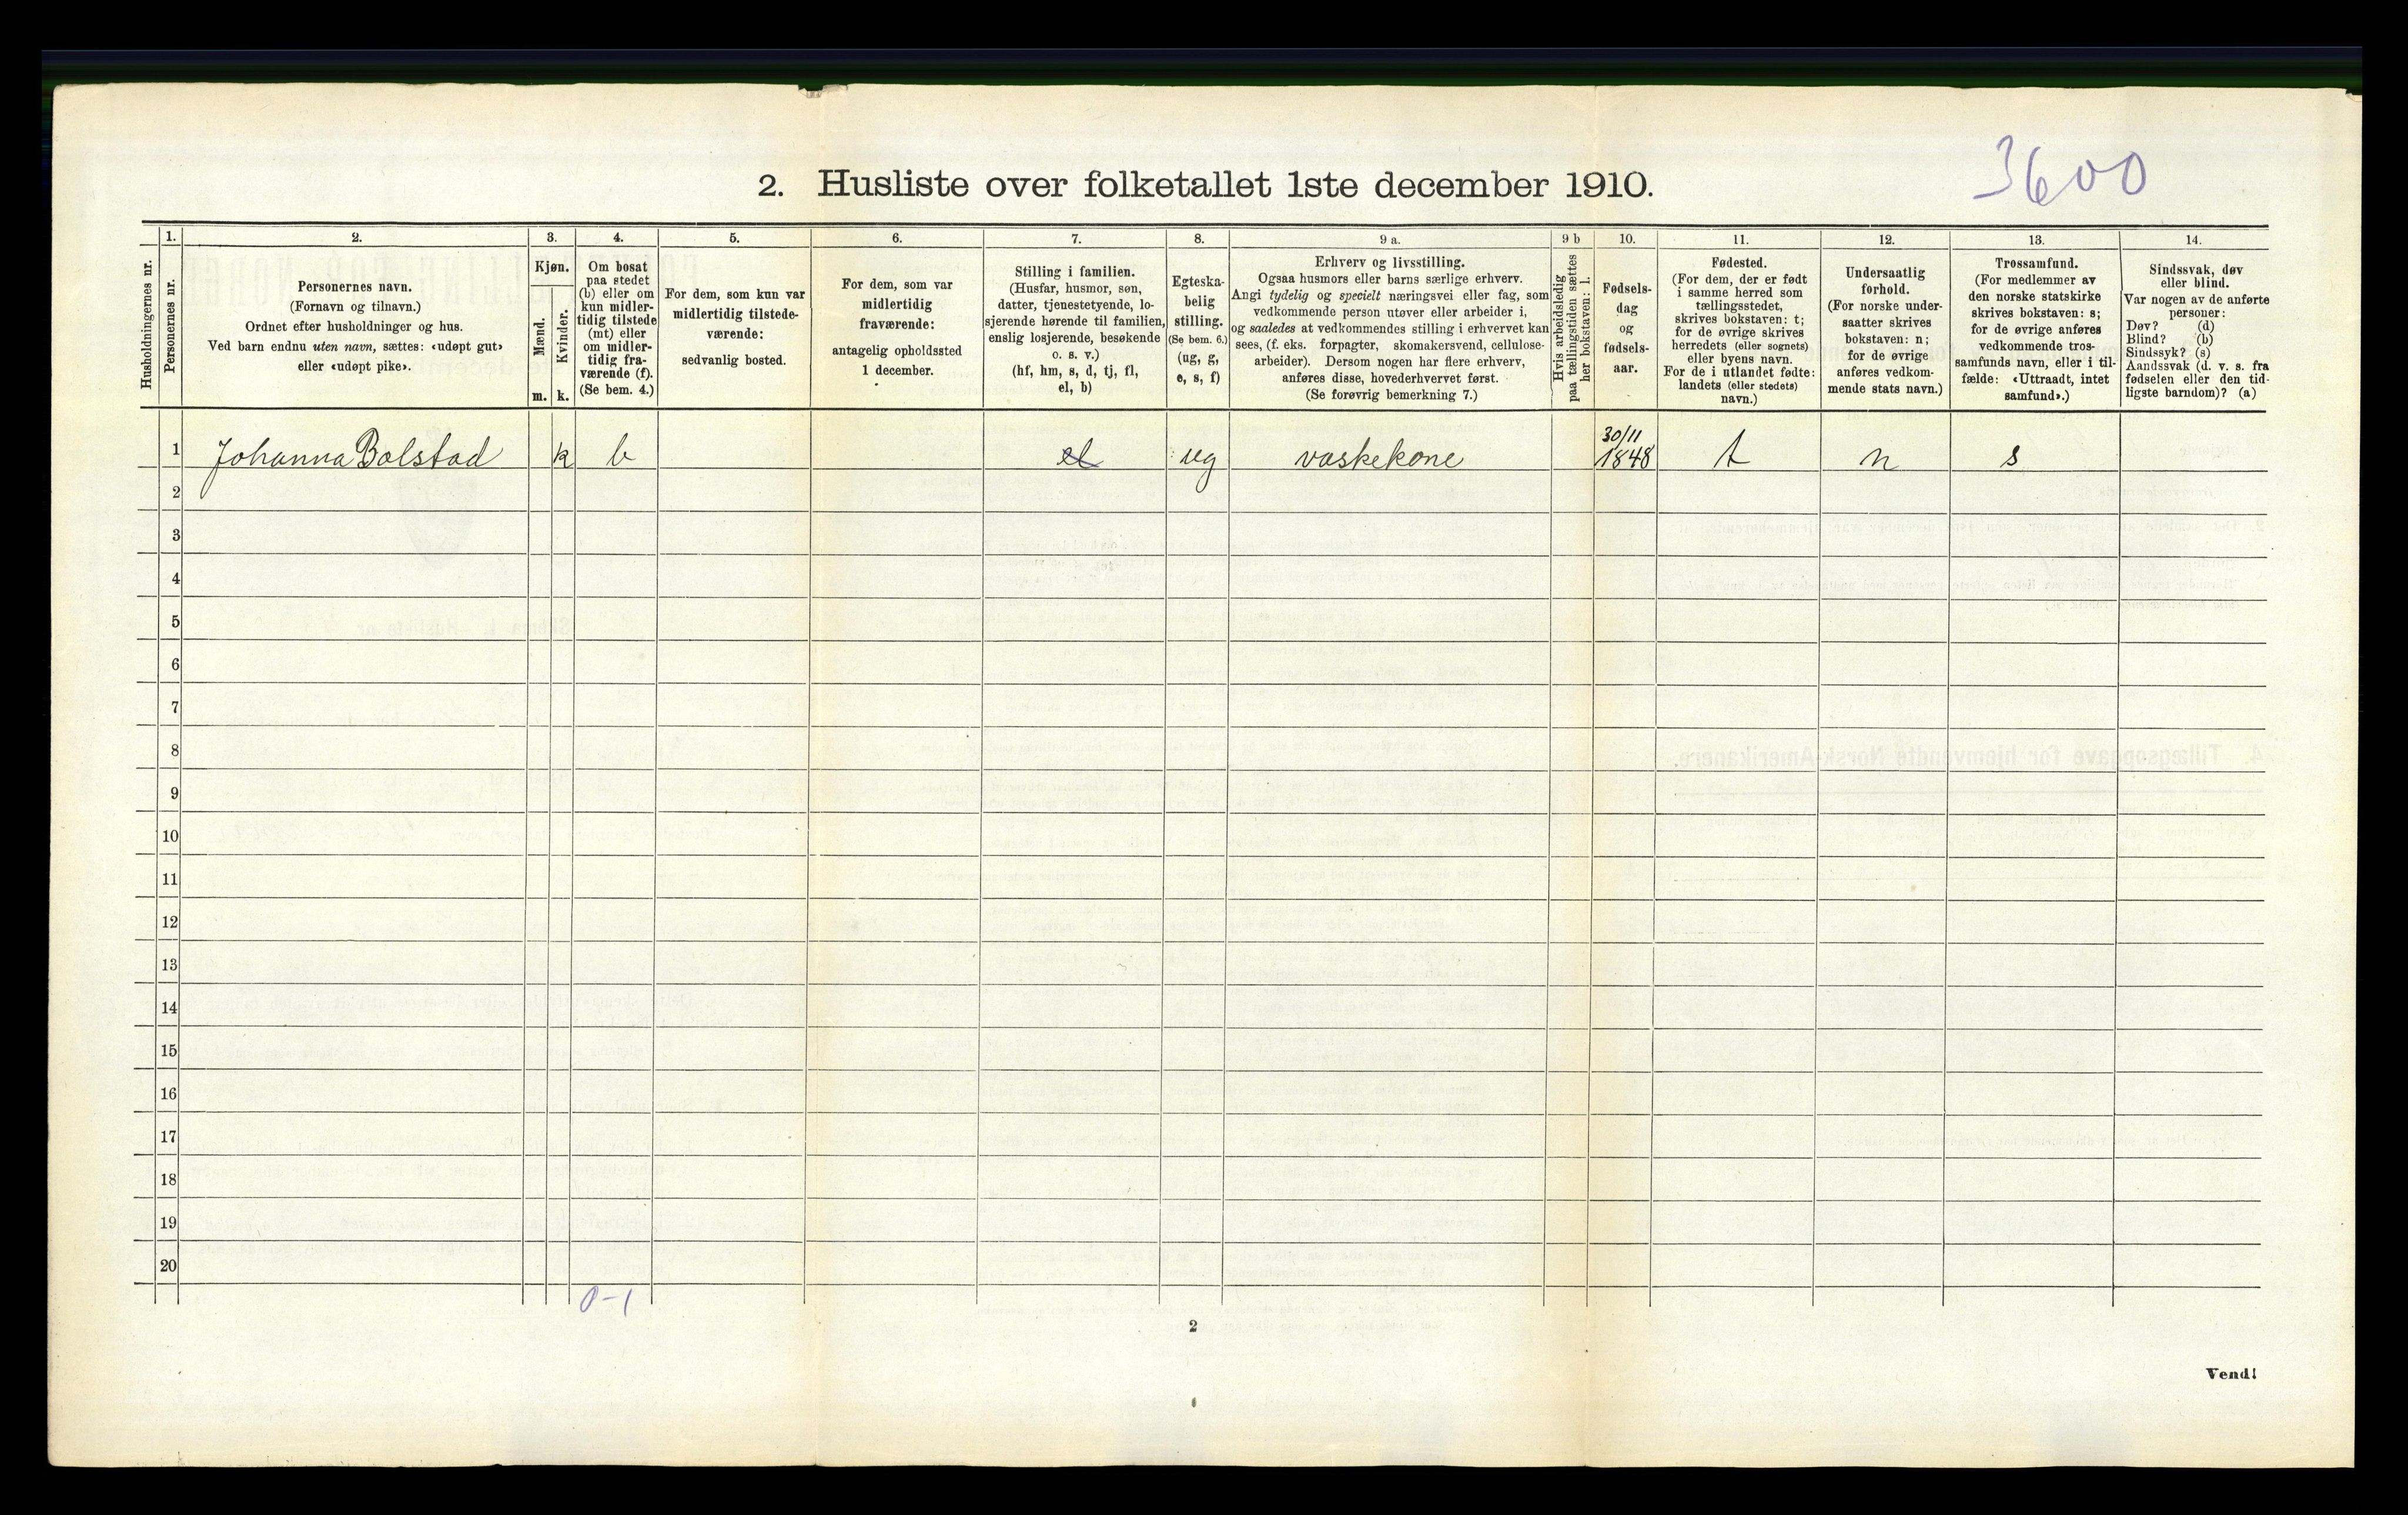 3600
2. Husliste over folketallet 1ste december 1910.
Husholdningernes nr.
1.
Personernes nr.
2.
Personernes navn.
(Fornavn og tilnavn.)
Ordnet efter husholdninger og hus.
Ved barn endnu uten navn, sættes: «udøpt gut»
eller «udøpt pike».
3.
Kjøn.
Mænd.
Kvinder.
m. k.
4.
Om bosat
paa stedet
(b) eller om
kun midler-
tidig tilstede
(mt) eller
om midler-
tidig fra-
værende (f).
(Se bem. 4.)
5.
For dem, som kun var
midlertidig tilstede-
værende:
sedvanlig bosted.
6.
For dem, som var
midlertidig
fraværende:
antagelig opholdssted
1 december.
7.
Stilling i familien.
(Husfar, husmor, søn,
datter, tjenestetyende, lo-
sjerende hørende til familien,
enslig losjerende, besøkende
o. s. v.)
(hf, hm, s, d, tj, fl,
el, b)
8.
Egteska-
belig
stilling.
(Se bem. 6.)
(ug, g,
e, s, f)
9 a.
Erhverv og livsstilling.
Ogsaa husmors eller barns særlige erhverv.
Angi tydelig og specielt næringsvei eller fag, som
vedkommende person utøver eller arbeider i,
og saaledes at vedkommendes stilling i erhvervet kan
sees, (f. eks. forpagter, skomakersvend, cellulose-
arbeider). Dersom nogen har flere erhverv,
anføres disse, hovederhvervet først.
(Se forøvrig bemerkning 7.)
9 b
Hvis arbeidsledig
paa tællingstiden sættes
her bokstaven: l.
10.
Fødsels-
dag
og
fødsels-
aar.
11.
Fødested.
(For dem, der er født
i samme herred som
tællingsstedet,
skrives bokstaven: t;
for de øvrige skrives
herredets (eller sognets)
eller byens navn.
For de i utlandet fødte:
landets (eller stedets)
navn.)
12.
Undersaatlig
forhold.
(For norske under-
saatter skrives
bokstaven: n;
for de øvrige
anføres vedkom-
mende stats navn.)
13.
Trossamfund.
(For medlemmer av
den norske statskirke
skrives bokstaven: s;
for de øvrige anføres
vedkommende tros-
samfunds navn, eller i til-
fælde: «Uttraadt, intet
samfund».)
14.
Sindssvak, døv
eller blind.
Var nogen av de anførte
personer:
Døv? (d)
Blind? (b)
Sindssyk? (s)
Aandssvak (d. v. s. fra
fødselen eller den tid-
ligste barndom)? (a)
1 Johanna Bolstad k b el ug vaskekone 30/11 1848 t n s
2
3
4
5
6
7
8
9
10
11
12
13
14
15
16
17
18
19
20
0-1
2
Vend!